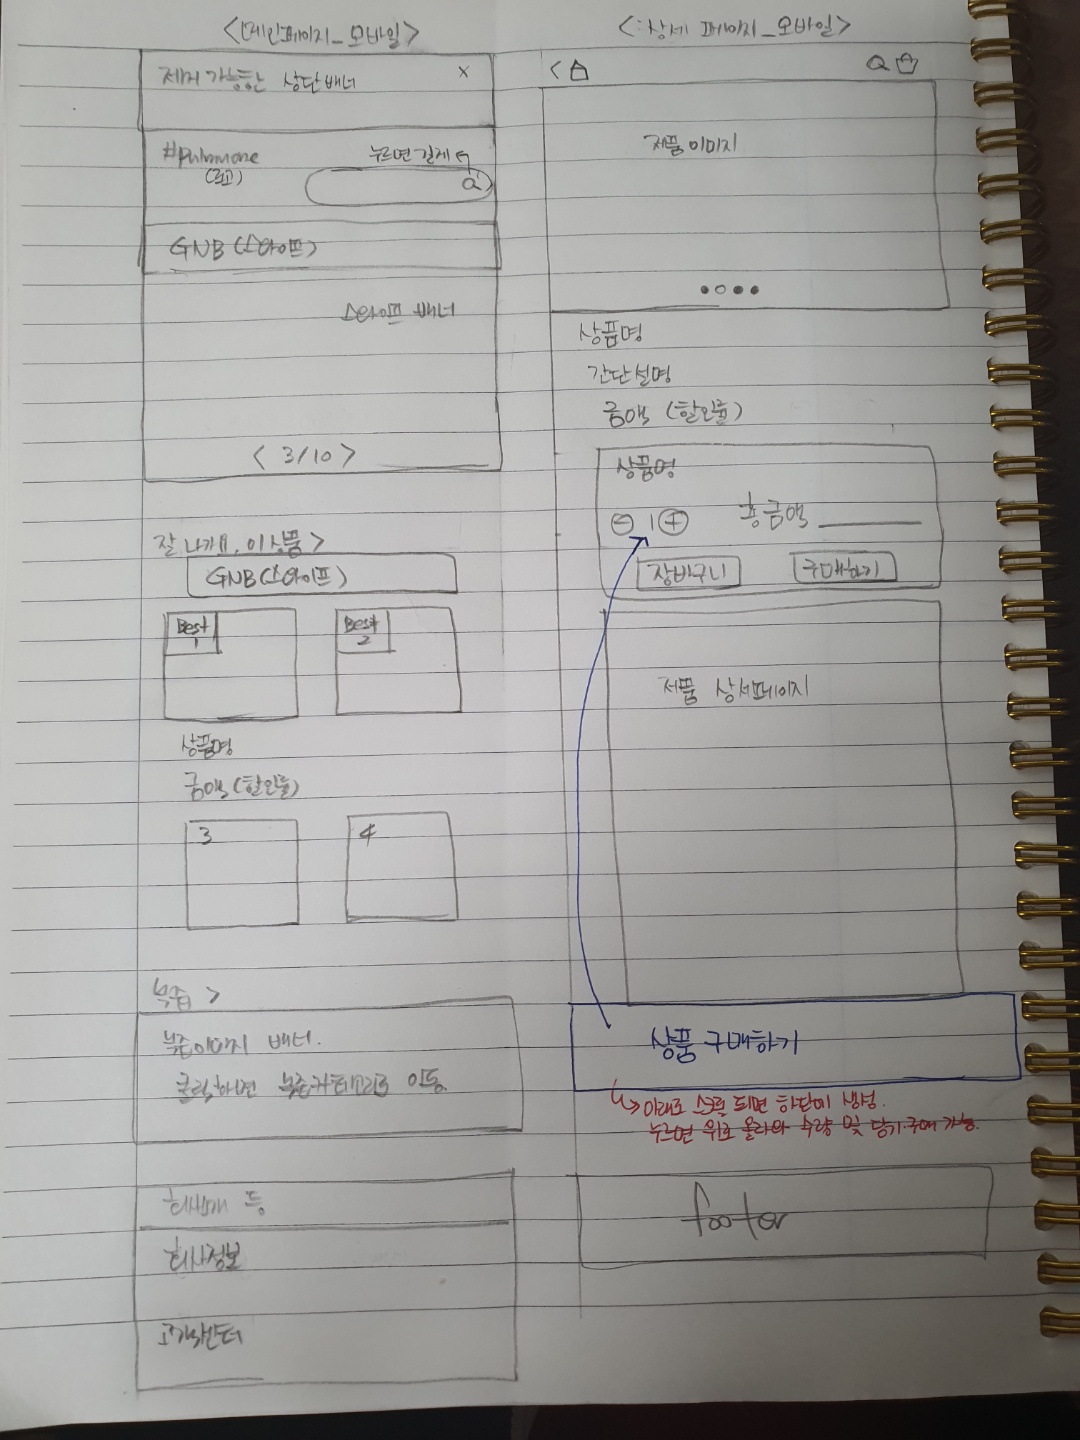 <메인페이지_모바일>
제거 가능한 상단 배너 X
#pulmuone 누르면 길게
(로고)
GNB (스와이프)
스와이프 배너
< 3/10 >
잘 나가 이상품 >
GNB (스와이프)
Best 1 Best 2
상품명
금액 (할인율)
3 4
녹즙 >
녹즙이미지 배너.
클릭하면 녹즙카테고리로 이동.
회사소개 등
회사정보
고객센터
<상세 페이지_모바일>
<
제품 이미지
상품명
간단설명
금액 (할인율)
상품명
- 1 + 총 금액
장바구니 구매하기
제품 상세페이지
상품 구매하기
↳ 아래로 스크롤 되면 하단에 생성.
누르면 위로 올라와 수량 및 담기·구매 가능.
footer